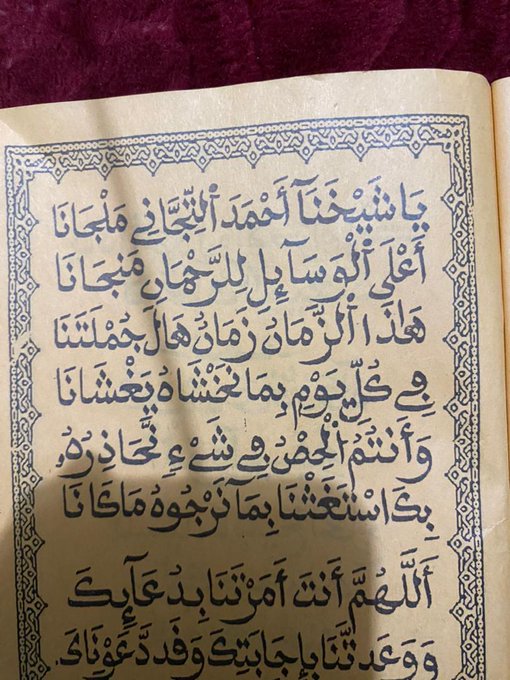 يَا شَيْخَنَآ أَحْمَدَ اَلتِّجَّانِي مَلْجَانَا
أَعْلَى اَلْوَسَآئِلِ لِلرَّحْمَانِ مَنجَانَا
هَاذَا اَلزَّمَانُ زَمَانٌ هَالَ جُمْلَتَنَا
فِي كُلِّ يَوْمٍ بِمَا نَخْشَاهُ يَغْشَانَا
وَأَنتُمُ الْحِصْنُ فِي شَيْءٍ نُّحَاذِرُهُ
بِكَ اسْتَغَثْنَا بِمَآ نَرْجُوهُ مَا كَانَا
أَللَّهُمَّ أَنتَ أَمَرْتَنَا بِدُعَآئِكَ
وَوَعَدتَّنَا بِإِجَابَتِكَ وَقَد دَّعَوْنَاكَ